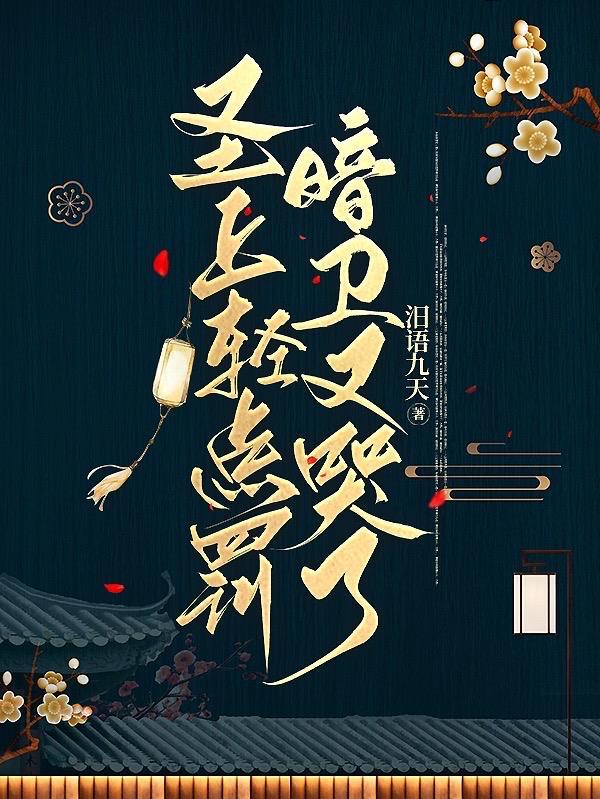 圣上轻点罚
暗卫又哭了
汨语九天 著